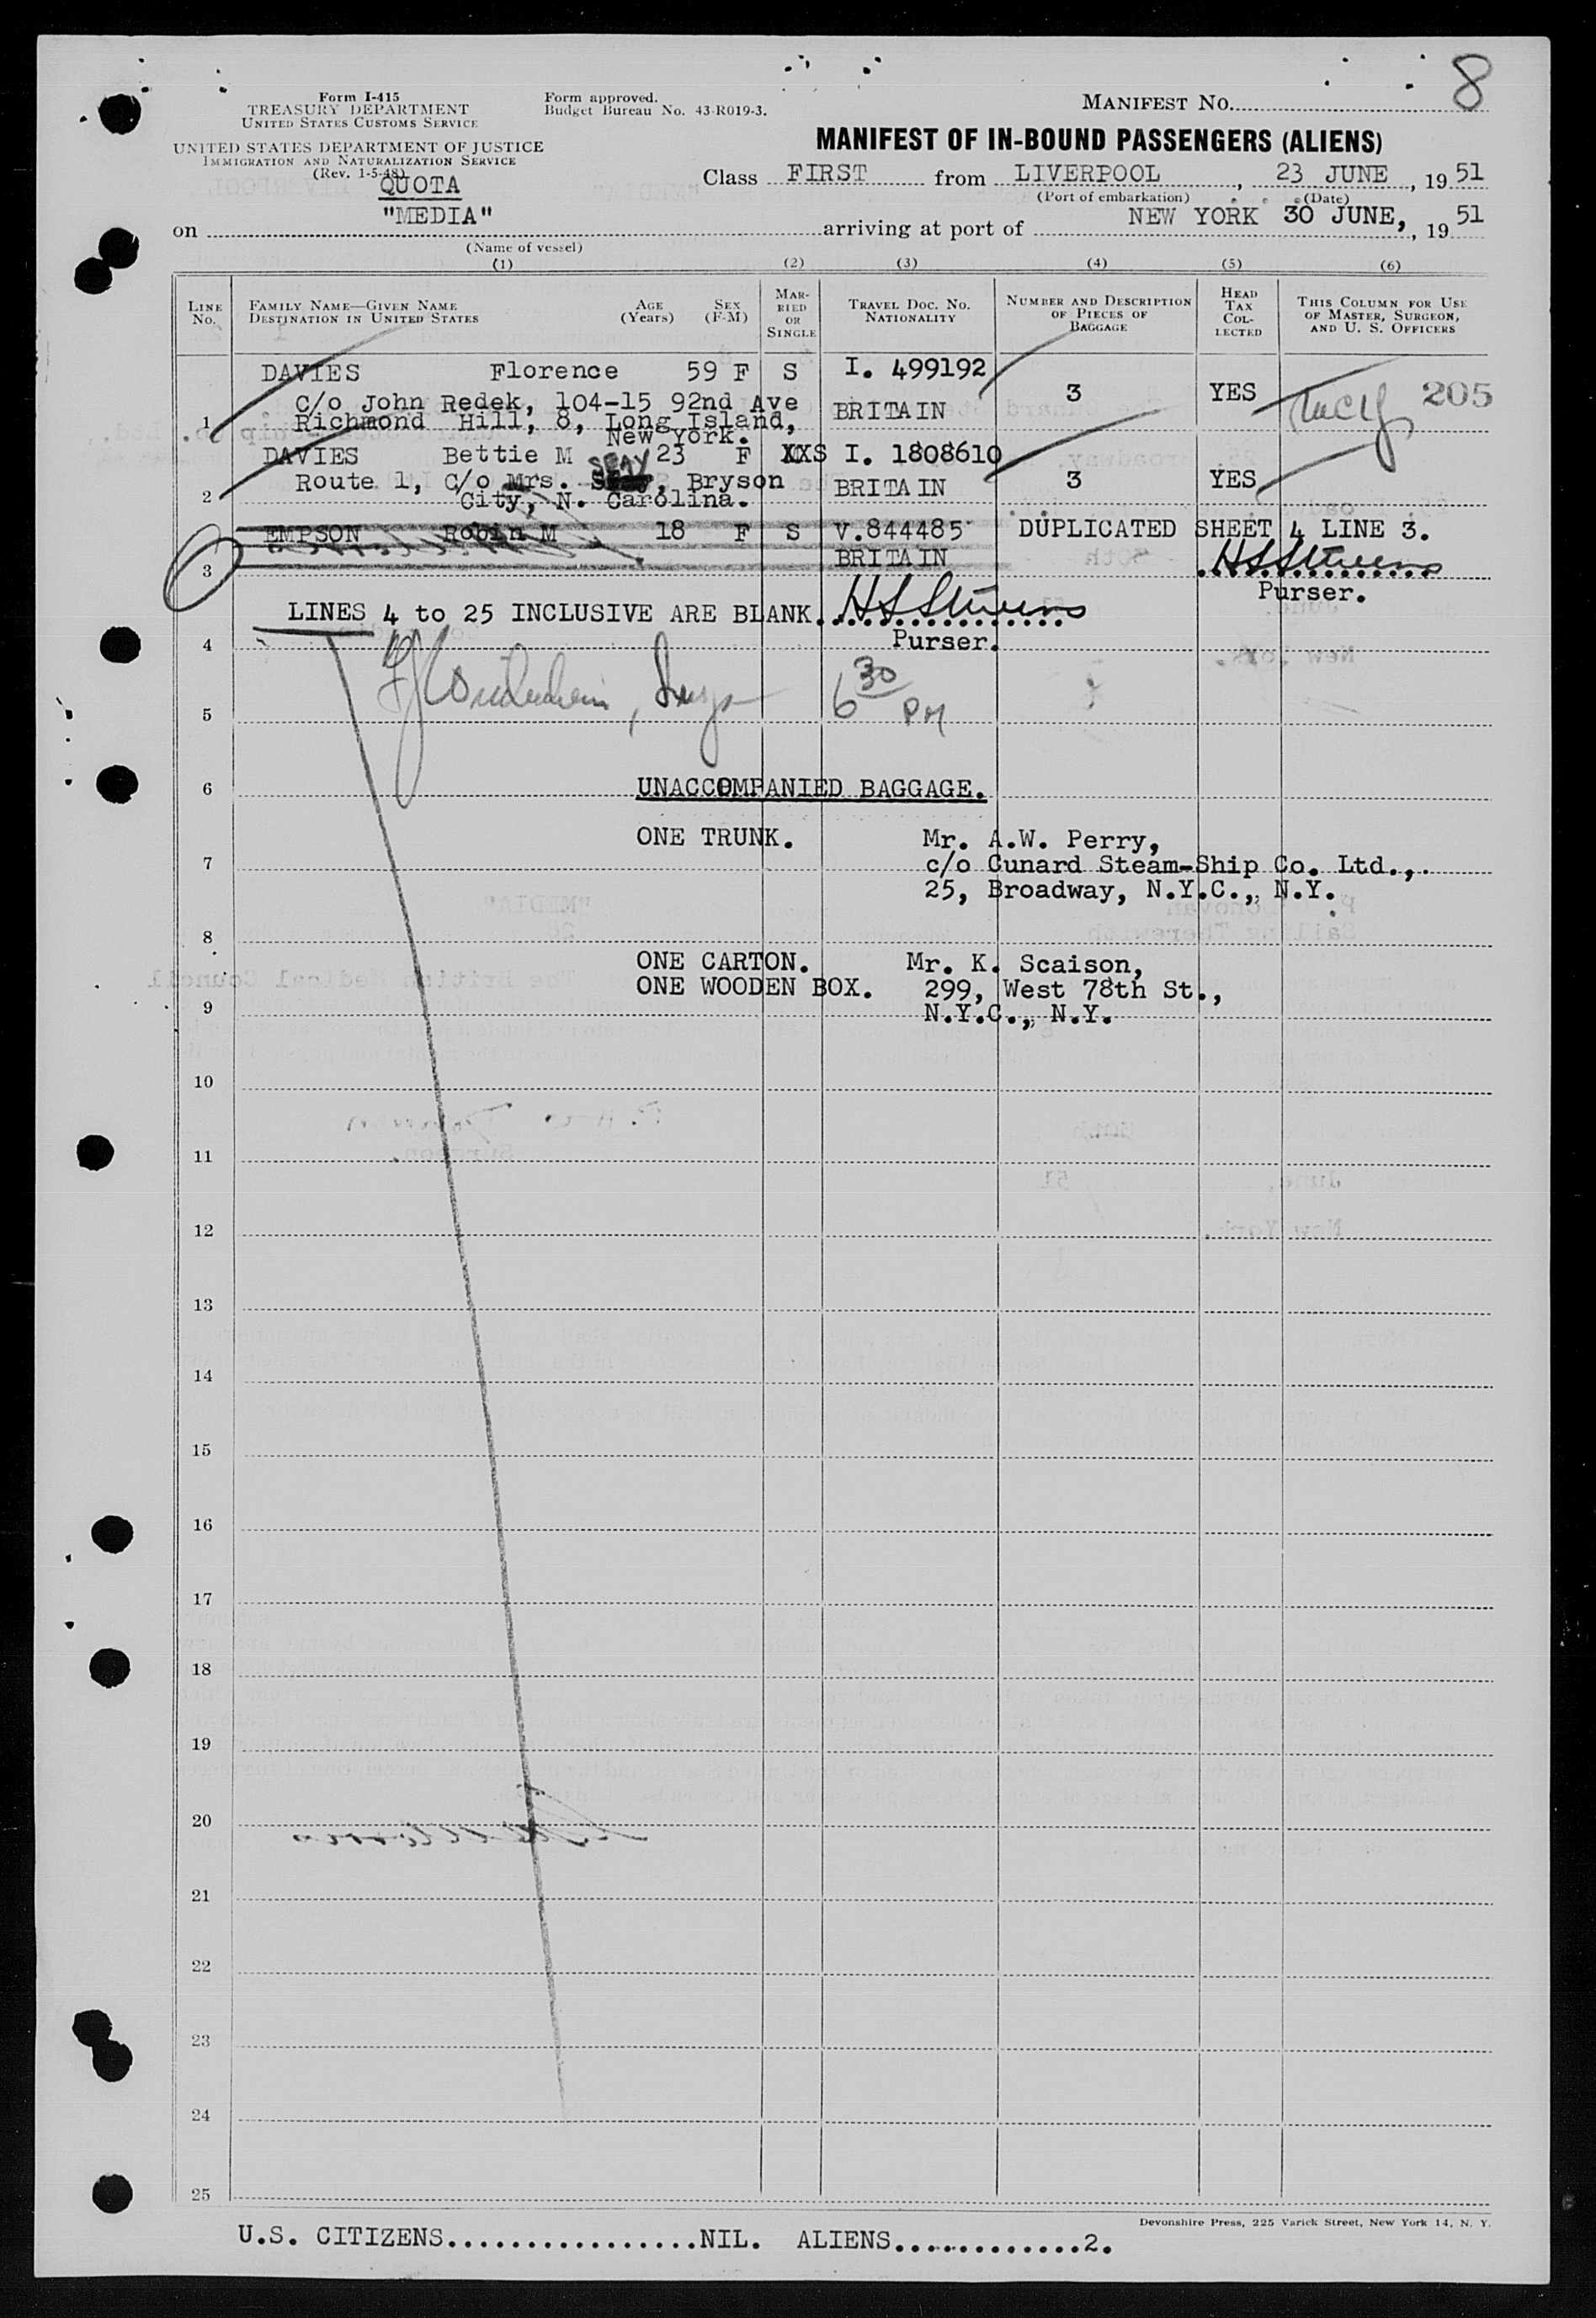 Form I-415
TREASURY DEPARTMENT
UNITED STATES CUSTOMS SERVICE
UNITED STATES DEPARTMENT OF JUSTICE
IMMIGRATION AND NATURALIZATION SERVICE
(Rev. 1-5-48)
QUOTA
Form approved.
Budget Bureau No. 43-R019-3.
MANIFEST No. 8
MANIFEST OF IN-BOUND PASSENGERS (ALIENS)
Class FIRST from LIVERPOOL, 23 JUNE, 19 51
(Port of embarkation) (Date)
on "MEDIA" arriving at port of NEW YORK 30 JUNE, , 19 51
(Name of vessel)
(1) (2) (3) (4) (5) (6)
LINE No.
FAMILY NAME—GIVEN NAME
DESTINATION IN UNITED STATES
AGE (Years)
SEX (F-M)
MARRIED OR SINGLE
TRAVEL DOC. NO.
NATIONALITY
NUMBER AND DESCRIPTION OF PIECES OF BAGGAGE
HEAD TAX COLLECTED
THIS COLUMN FOR USE OF MASTER, SURGEON, AND U. S. OFFICERS
DAVIES Florence 59 F S I. 499192
C/o John Redek, 104-15 92nd Ave BRITAIN 3 YES 205
1 Richmond Hill, 8, Long Island,
New York.
DAVIES Bettie M 23 F XXS I. 1808610
Route 1, C/o Mrs. SEAY, Bryson BRITAIN 3 YES
2 City, N. Carolina.
EMPSON Robin M 18 F S V.844485 DUPLICATED SHEET 4 LINE 3.
BRITAIN
3 HS Stivens
Purser.
LINES 4 to 25 INCLUSIVE ARE BLANK. HS Stivens
4 Purser.
6 30 PM
5
6 UNACCOMPANIED BAGGAGE.
ONE TRUNK. Mr. A.W. Perry,
7 c/o Cunard Steam-Ship Co. Ltd.,.
25, Broadway, N.Y.C., N.Y.
8
ONE CARTON. Mr. K. Scaison,
ONE WOODEN BOX. 299, West 78th St.,
9 N.Y.C., N.Y.
10
11
12
13
14
15
16
17
18
19
20
21
22
23
24
25
Devonshire Press, 225 Varick Street, New York 14, N. Y.
U.S. CITIZENS................NIL. ALIENS............2.